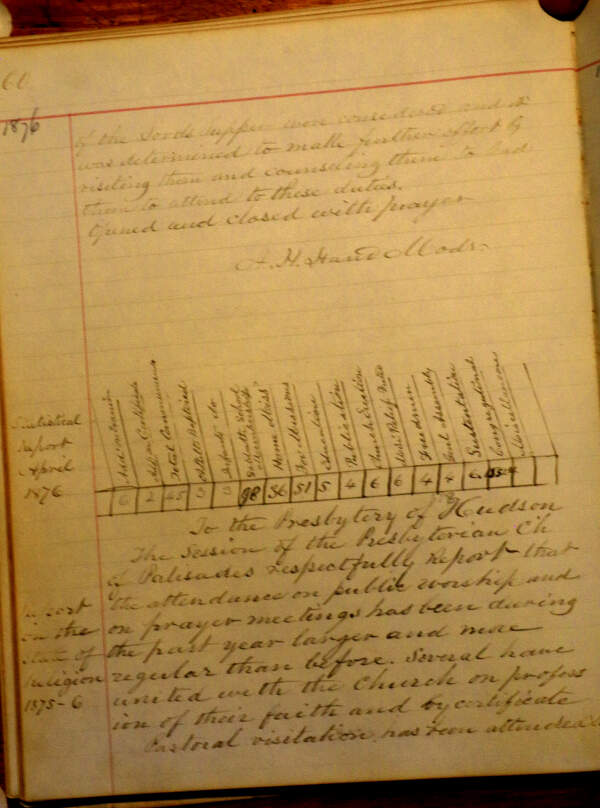 60
1876
of the Lords Supper were considered and it
was determined to make further effort by
visiting them and counseling them to
them to attend to these duties.
Opened and closed with prayer
A. H. Hand Modr.
Statistical
Report
April
1876
Added on Examin
Add on Certificate
Total Communicants
Adults Baptized
Infants do
Sabbath School
Home Miss
For Missions
Education
Publication
Church Erection
Freedmen
Genl Assembly
Sustentation
Congregational
Miscellaneous
6 2 45 3 3 98 56 51 51 4 6 6 4 4 6
To the Presbytery of Hudson
The Session of the Presbyterian Ch
of Palisades respectfully Report that
Report the attendance on public worship and
on the on prayer meetings has been during
State of the past year larger and more
Religion regular than before. Several have
1875-6 united with the Church on profess
ion of their faith and by certificate
Pastoral visitation has been attended